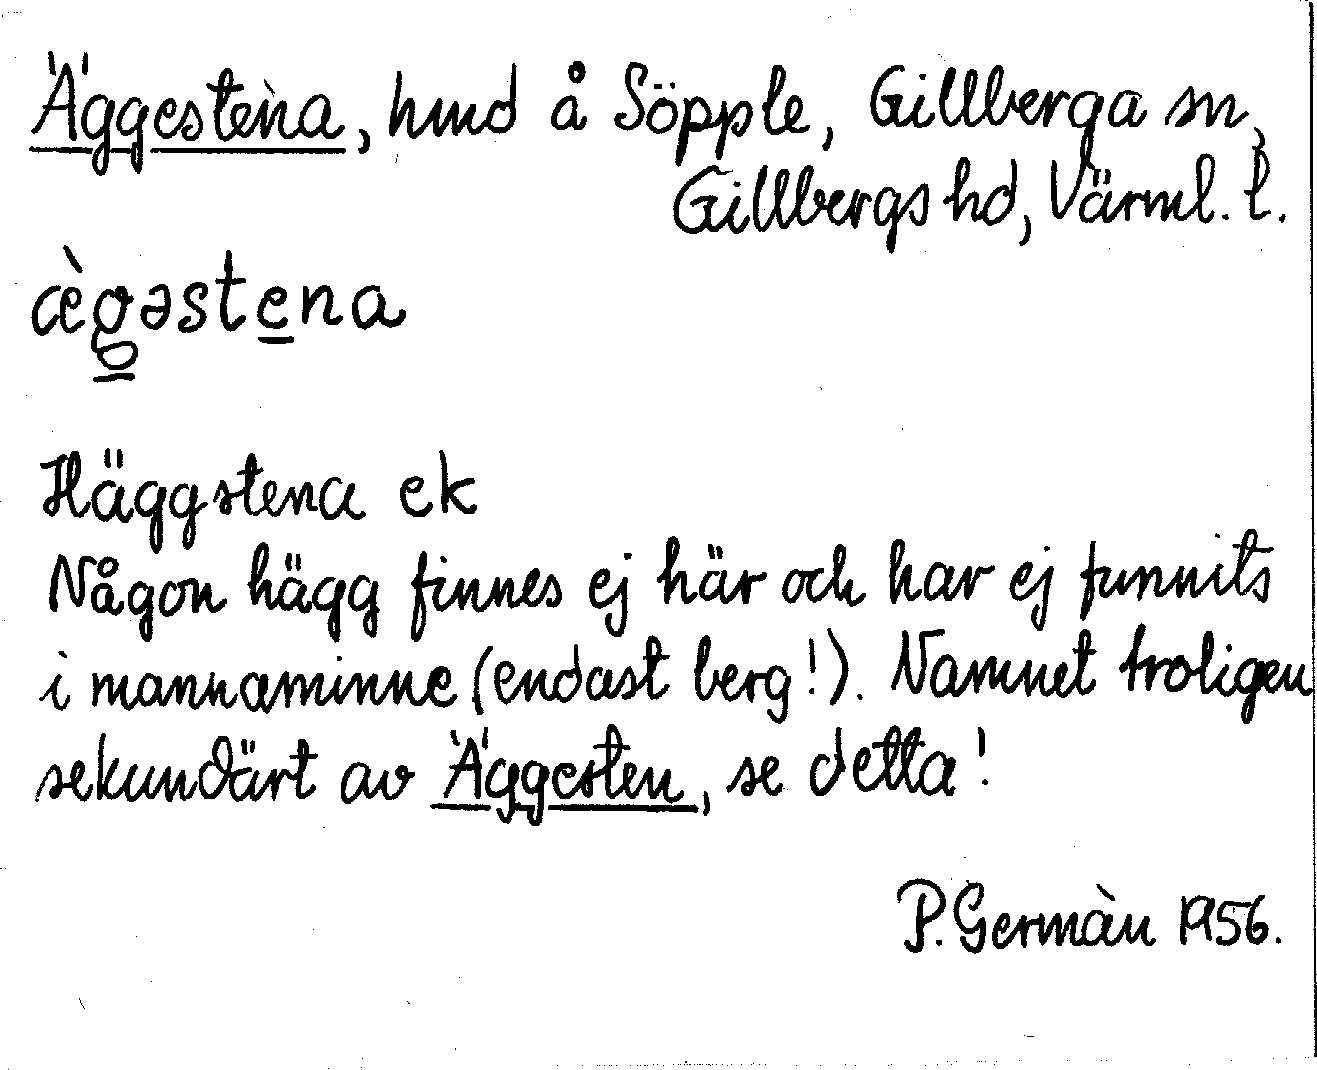 Äggestena, hmd å Söpple, Gillberga sn,
Gillbergs hd, Värml. l.
æ̀gəstena
Häggstena ek
Någon hägg finnes ej här och har ej funnits
i mannaminne (endast berg!). Namnet troligen
sekundärt av Äggesten, se detta!
P. Germàn 1956.